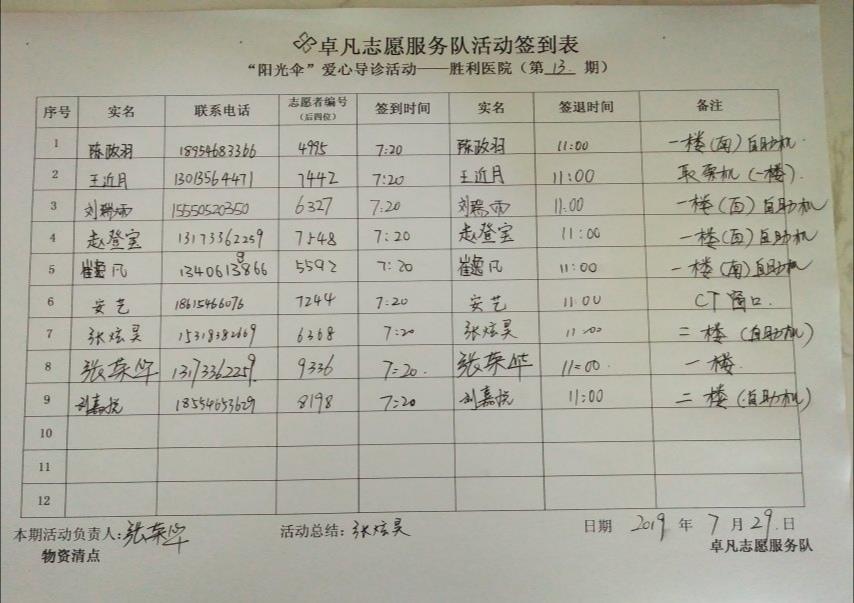 卓凡志愿服务队活动签到表
“阳光伞”爱心导诊活动——胜利医院（第 13. 期）
序号 实名 联系电话 志愿者编号（后四位） 签到时间 实名 签退时间 备注
1 陈政羽 18954683366 4995 7:20 陈政羽 11:00 一楼(南)自助机
2 王近月 13013564471 7442 7:20 王近月 11:00 取票机(一楼).
3 刘瑞雨 15550520350 6327 7:20 刘瑞雨 11:00 一楼(西)自助机
4 赵登宝 13173362259 7548 7:20 赵登宝 11:00 一楼(西)自助机
5 崔逸凡 5592 7:20 崔逸凡 11:00 一楼(南)自助机
6 安艺 18615466076 7244 7:20 安艺 11:00 CT窗口.
7 张炫昊 15318382669 6368 7:20 张炫昊 11:00 二楼(自助机)
8 张荣华 13173362259. 9336 7:20. 张荣华 11:00. 一楼.
9 刘嘉悦 18554653629 8198 7:20 刘嘉悦 11:00 二楼(自助机)
10
11
12
本期活动负责人:张荣华 活动总结: 张炫昊 日期 2019 年 7 月 29. 日
物资清点 卓凡志愿服务队